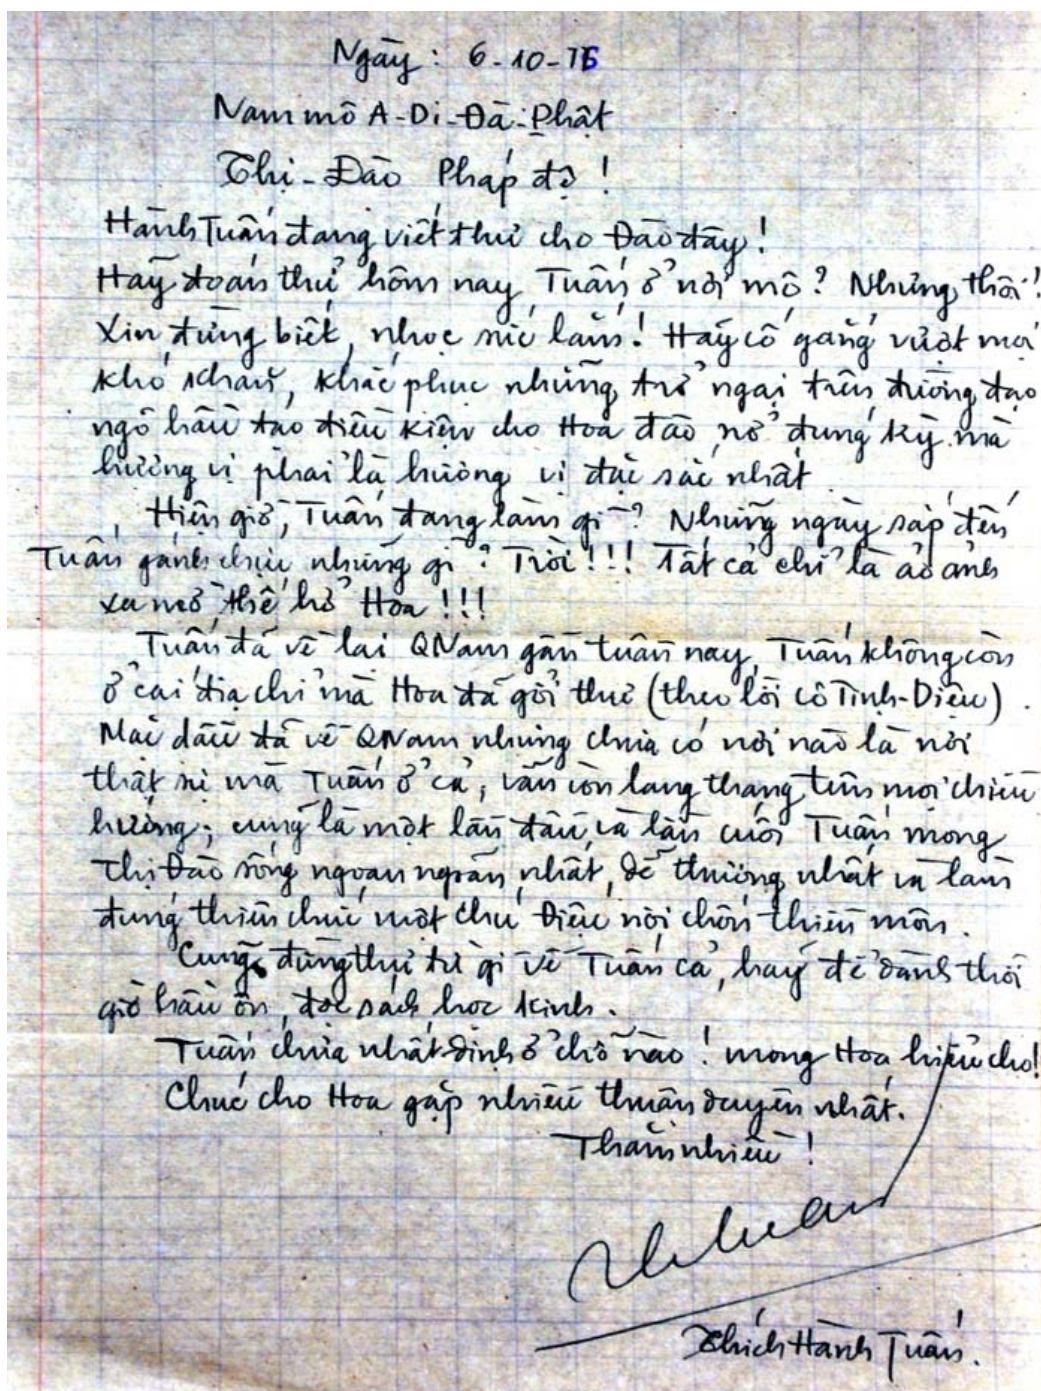 Ngày: 6-10-76
Nam mô A-Di-Đà-Phật
Thị-Đào Pháp đệ!
Hành Tuấn đang viết thư cho Đào đây!
Hãy đoán thử hôm nay Tuấn ở nơi mô? Nhưng thôi!
Xin đừng biết, nhọc sức lắm! Hãy cố gắng vượt mọi
khó khăn, khắc phục những trở ngại trên đường đạo
ngõ hầu tạo điều kiện cho Hoa đào nở đúng kỳ mà
hương vị phải là hương vị đặc sắc nhất
Hiện giờ, Tuấn đang làm gì? Những ngày sắp đến
Tuấn gánh chịu những gì? Trời!!! Tất cả chỉ là ảo ảnh
xa mờ thế hở Hoa!!!
Tuấn đã về lại QNam gần tuần nay, Tuấn không còn
ở cái địa chỉ mà Hoa đã gởi thư (theo lời cô Tịnh-Diệu).
Mặc dầu đã về QNam nhưng chưa có nơi nào là nơi
thật sự mà Tuấn ở cả, vẫn còn lang thang trên mọi chiều
hướng; cũng là một lần đầu và lần cuối Tuấn mong
Thị Đào sống ngoan ngoãn nhất, dễ thương nhất và làm
đúng thiên chức một chú Điệu nơi chốn thiền môn.
Cũng đừng thư từ gì về Tuấn cả, hãy để dành thời
giờ hầu ôn, đọc sách học kinh.
Tuấn chưa nhất định ở chỗ nào! mong Hoa hiểu cho!
Chúc cho Hoa gặp nhiều thuận duyên nhất.
Thăm nhiều!
Thích Hành Tuấn.